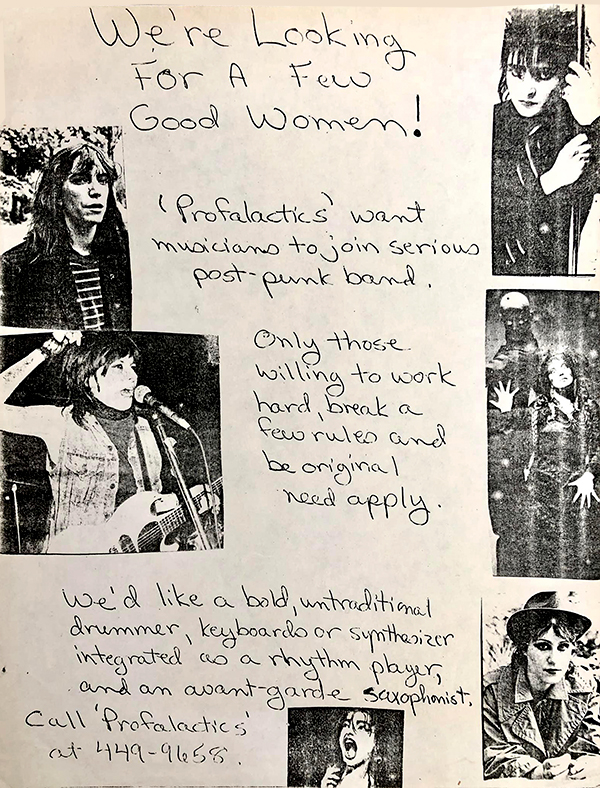 We're Looking
For A Few
Good Women!
'Profalactics' want
musicians to join serious
post-punk band.
Only those
willing to work
hard, break a
few rules and
be original
need apply.
We'd like a bold, untraditional
drummer, keyboards or synthesizer
integrated as a rhythm player,
and an avant-garde saxophonist.
Call 'Profalactics'
at 449-9658.